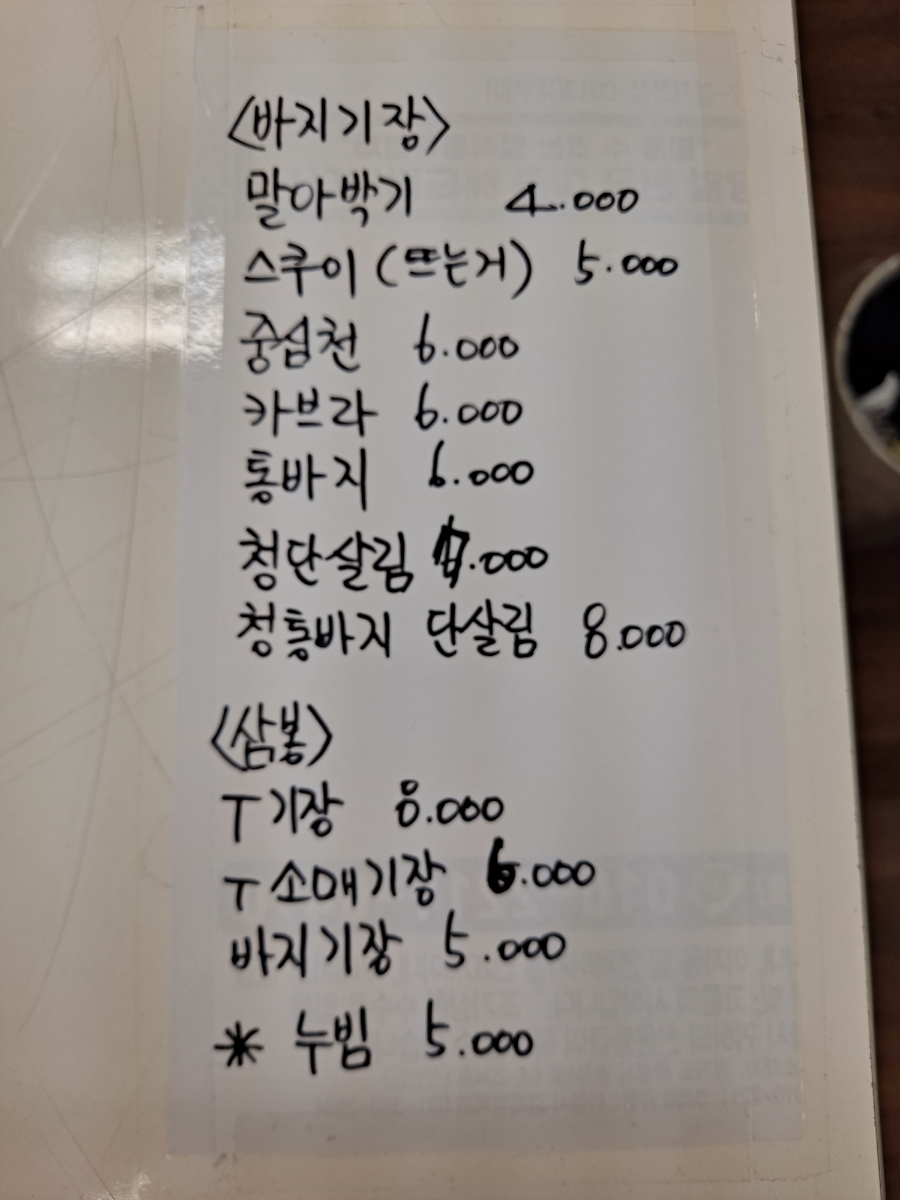 <바지기장>
말아박기 4.000
스쿠이 (뜨는거) 5.000
중심천 6.000
카브라 6.000
통바지 6.000
청단살림 7.000
청통바지 단살림 8.000
<삼봉>
T기장 8.000
T소매기장 6.000
바지기장 5.000
* 누빔 5.000